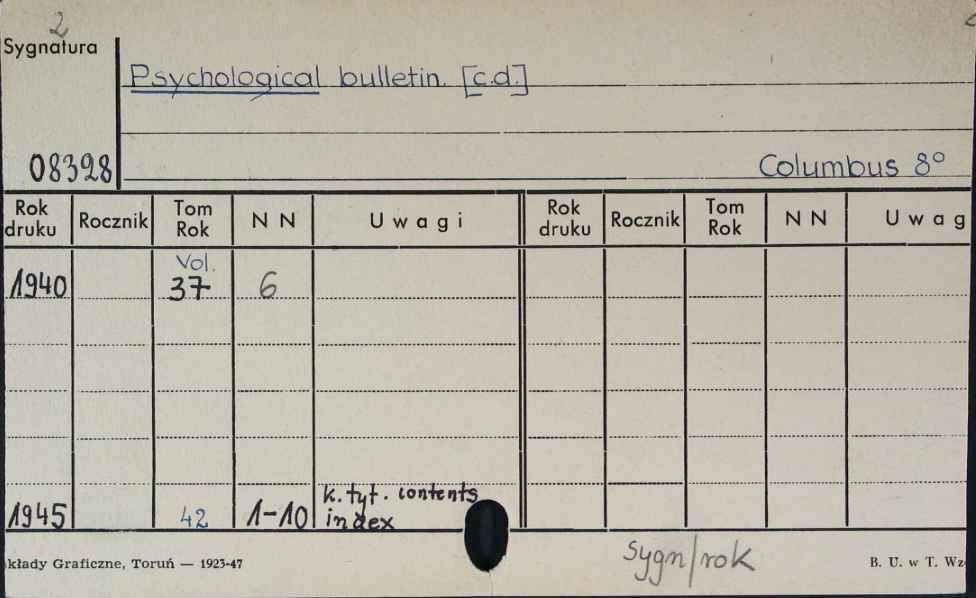 2
Sygnatura
Psychological bulletin. [c.d.]
08328
Columbus 8°
Rok druku Rocznik Tom Rok N N Uwagi Rok druku Rocznik Tom Rok N N Uwag
1940 Vol. 37 6
k. tyt. contents
1945 42 1-10 index
sygn/rok
kłady Graficzne, Toruń — 1923-47 B. U. w T. Wz